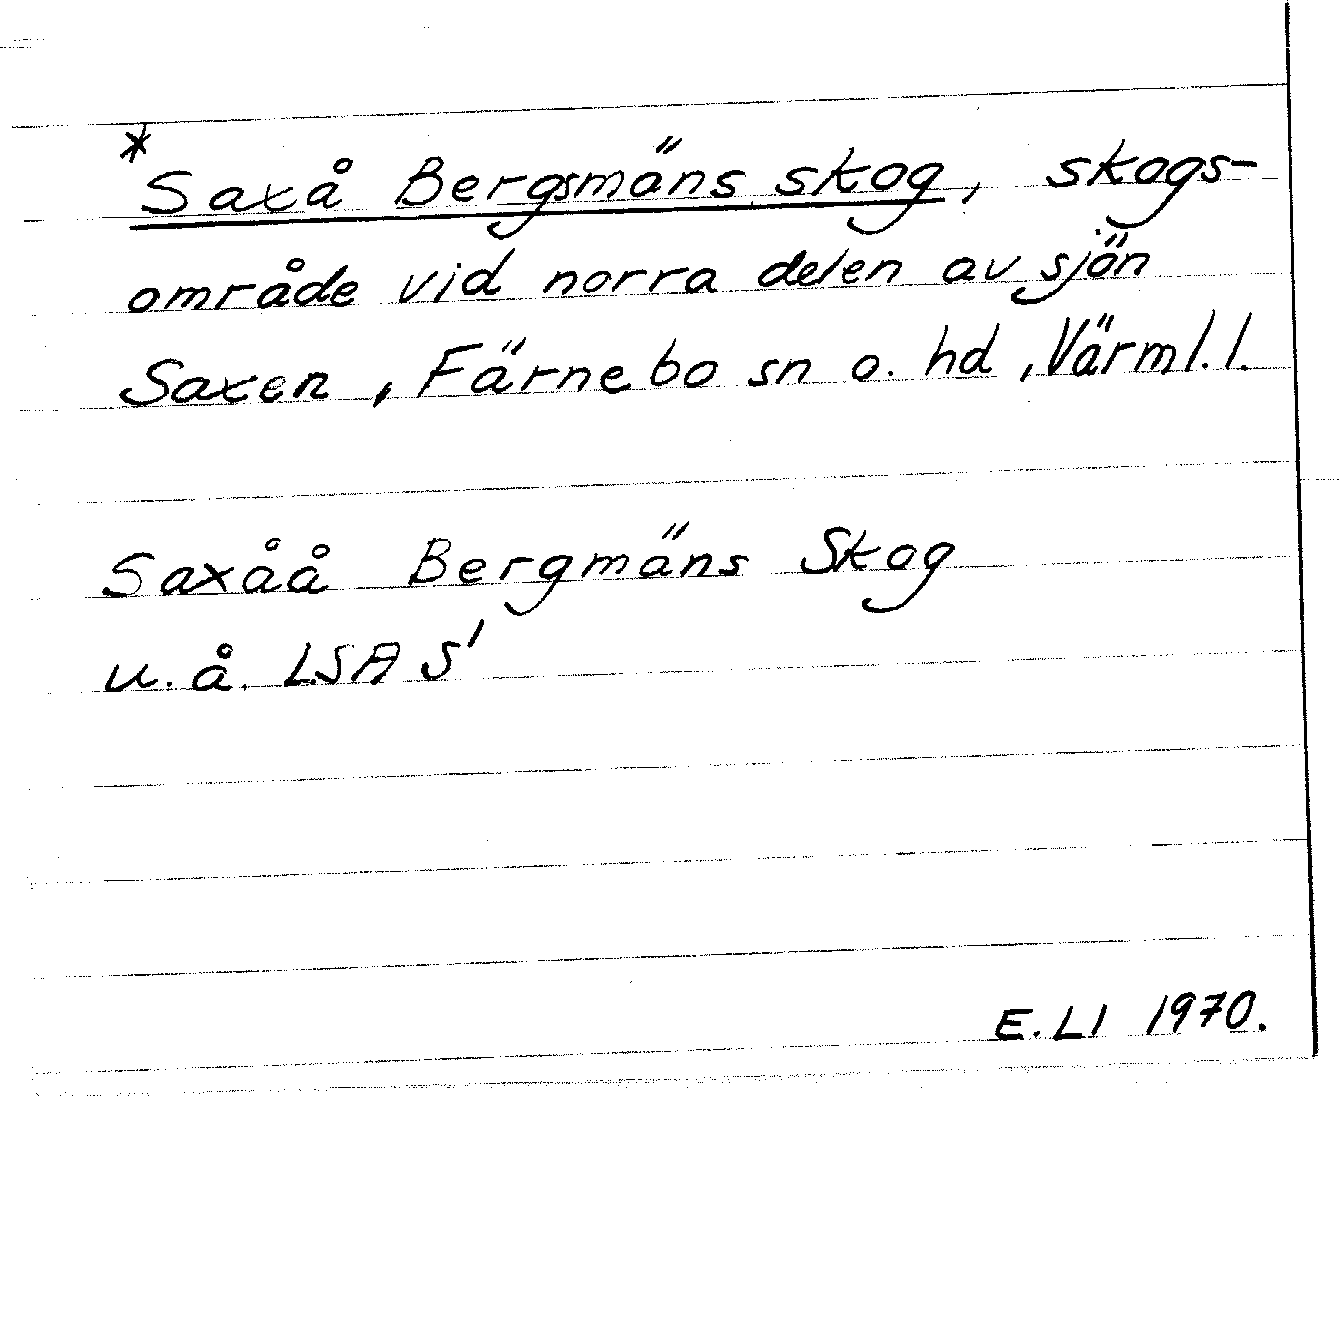 *Saxå Bergsmäns skog, skogs-
område vid norra delen av sjön
Saxen, Färnebo sn o. hd, Värml. l.
Saxåå Bergmäns Skog
u. å. LSA S'
E. LI 1970.